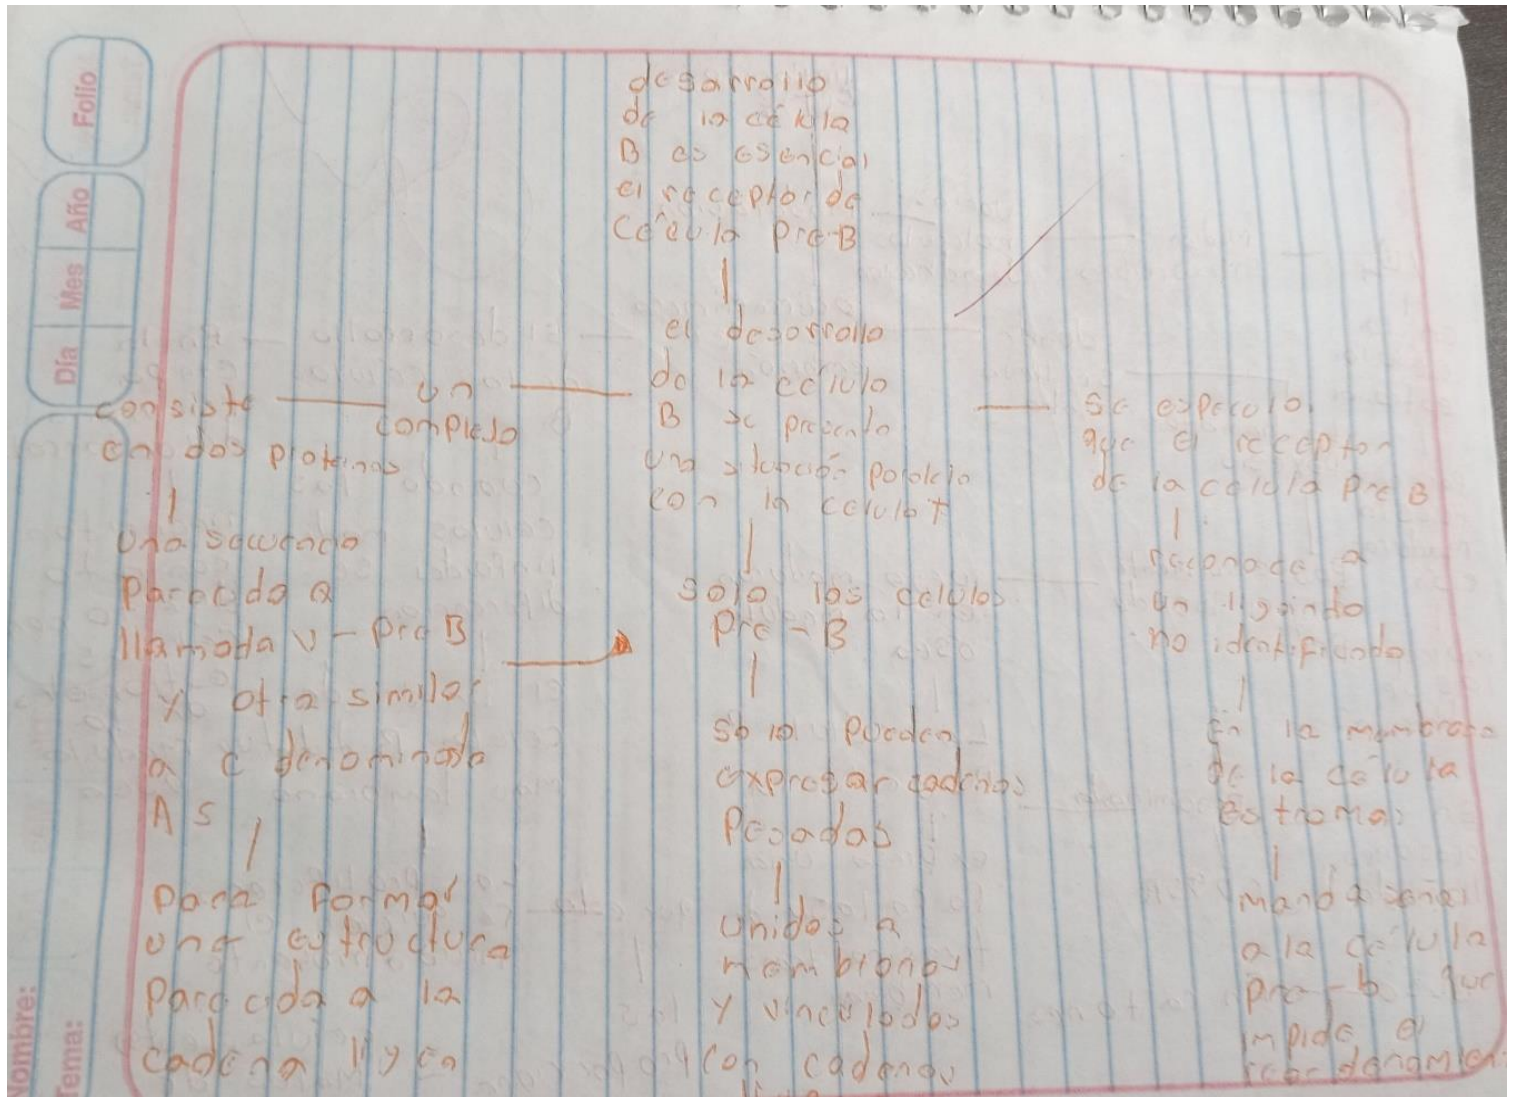 Folio
Año
Mes
Día
Nombre:
Tema:
desarrollo
de la célula
B es esencial
el receptor de
Célula Pre-B
el desarrollo
de la celula
B se presenta
una situación paralela
con la celula T
solo las celulas
Pre-B
solo pueden
expresar cadenas
Pesadas
unidas a
membranas
y vinculadas
con cadenas
un
complejo
consiste
en dos proteinas
una secuencia
Parecida a
llamada V-Pre B
y otra similar
a C denominada
λ5
para formar
una estructura
Parecida a la
cadena
se especula
que el receptor
de la célula Pre B
reconoce a
un ligando
no identificado
En la membrana
de la célula
estromas
manda señal
a la célula
pre-b que
impide el